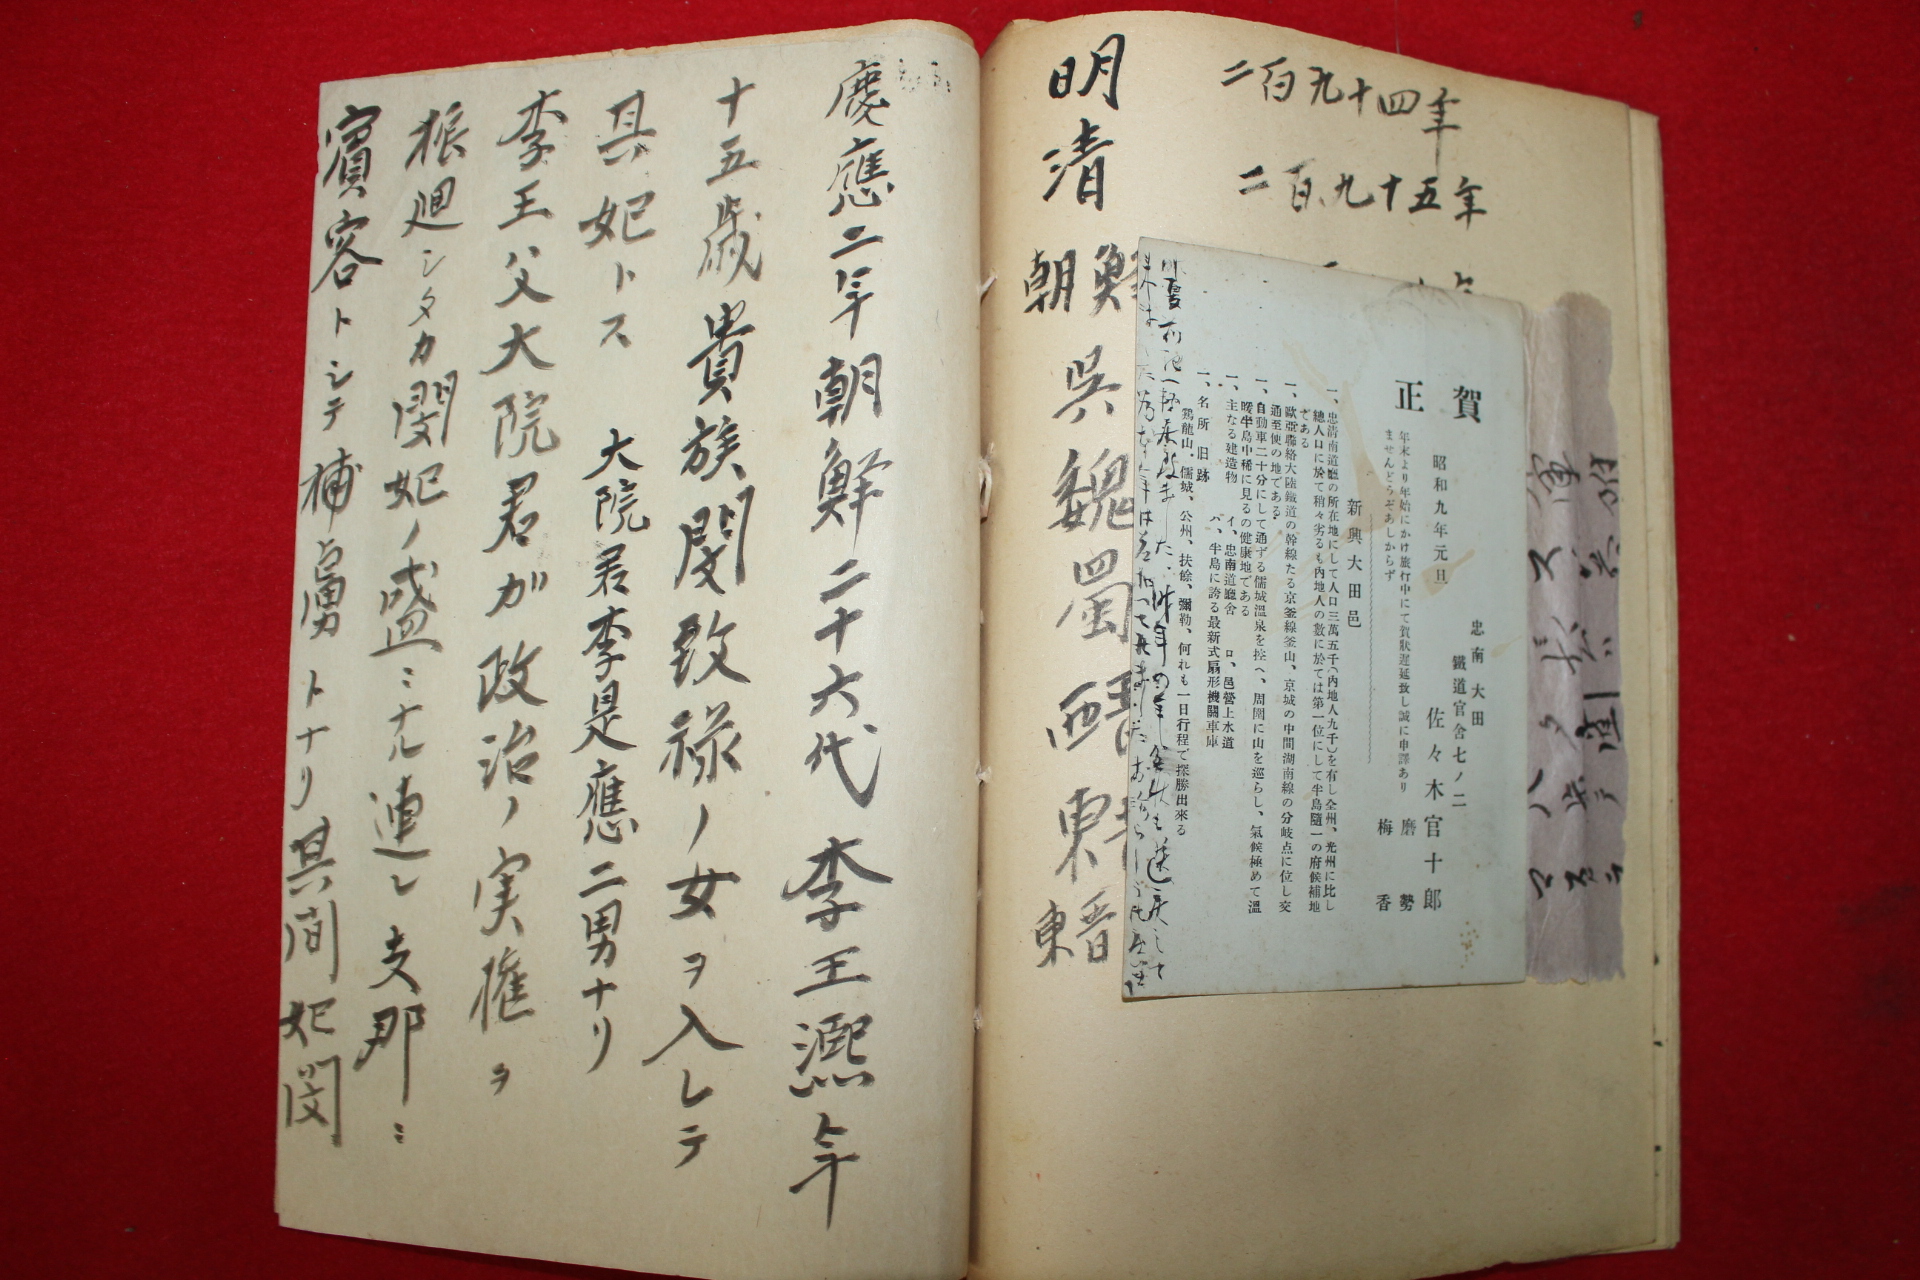 二百九十四年
二百九十五年
明清
朝鮮
呉魏蜀
西晋
東晋
賀正
昭和九年元旦
年末より年始にかけ旅行中にて賀狀遲延致し誠に申譯あり
ませんどうぞあしからず
忠南大田
鐵道官舍七ノ二
佐々木官十郎
磨勢
梅香
新興大田邑
一、忠清南道廳の所在地にして人口三萬五千(内地人九千)を有し全州、光州に比し
總人口に於て稍々劣るも内地人の數に於ては第一位にして半島隨一の府候補地
である
一、歐亞聯絡大陸鐵道の幹線たる京釜線釜山、京城の中間湖南線の分岐点に位し交
通至便の地である
一、自動車二十分にして通ずる儒城溫泉を控へ、周圍に山を巡らし、氣候極めて溫
暖半島中稀に見るの健康地である
一、主なる建造物 イ、忠南道廳舍 ロ、邑營上水道
ハ、半島に誇る最新式扇形機關車庫
一、名所旧跡
鷄龍山、儒城、公州、扶餘、彌勒、何れも一日行程で探勝出來る
慶應二年朝鮮二十六代李王凞年
十五歳貴族閔致禄ノ女ヲ入レテ
其妃トス 大院君李是應二男ナリ
李王ハ父大院君ガ政治ノ実権ヲ
振廻シタカ閔妃ノ盛ミナル連レ支那ミ
賓客トシテ補虜トナリ其間妃閔